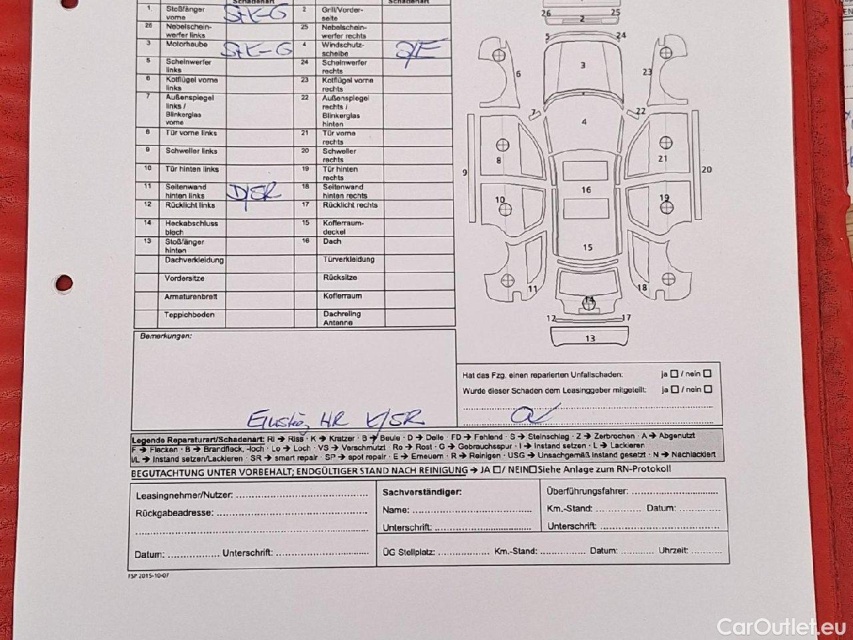 Schadenart Schadenart
1 Stoßfänger vorne S+K-G 2 Grill/Vorderseite
26 Nebelscheinwerfer links 25 Nebelscheinwerfer rechts
3 Motorhaube S+K-G 4 Windschutzscheibe
5 Scheinwerfer links 24 Scheinwerfer rechts
6 Kotflügel vorne links 23 Kotflügel vorne rechts
7 Außenspiegel links / Blinkerglas vorne 22 Außenspiegel rechts / Blinkerglas hinten
8 Tür vorne links 21 Tür vorne rechts
9 Schweller links 20 Schweller rechts
10 Tür hinten links 19 Tür hinten rechts
11 Seitenwand hinten links D/SR 18 Seitenwand hinten rechts
12 Rücklicht links 17 Rücklicht rechts
14 Heckabschluss blech 15 Kofferraum-deckel
13 Stoßfänger hinten 16 Dach
Dachverkleidung Türverkleidung
Vordersitze Rücksitze
Armaturenbrett Kofferraum
Teppichboden Dachreling Antenne
26 2 25
5 24
3
6 23
7 22
4
8 21
9 20
10 19
16
15
11 18
14
12 17
13
Bemerkungen:
HR K/SR
Hat das Fzg. einen reparierten Unfallschaden: ja / nein
Wurde dieser Schaden dem Leasinggeber mitgeteilt: ja / nein
Legende Reparaturart/Schadenart: RI → Riss · K → Kratzer · B → Beule · D → Delle · FD → Fehlend · S → Steinschlag · Z → Zerbrochen · A → Abgenutzt
F → Flecken · B → Brandfleck, -loch · Lo → Loch · VS → Verschmutzt · Ro → Rost · G → Gebrauchsspur · I → Instand setzen · L → Lackieren
I/L → Instand setzen/Lackieren · SR → smart repair · SP → spot repair · E → Erneuern · R → Reinigen · USG → Unsachgemäß instand gesetzt · N → Nachlackiert
BEGUTACHTUNG UNTER VORBEHALT; ENDGÜLTIGER STAND NACH REINIGUNG → JA / NEIN Siehe Anlage zum RN-Protokoll
Leasingnehmer/Nutzer:
Rückgabeadresse:
Datum: Unterschrift:
Sachverständiger:
Name:
Unterschrift:
Überführungsfahrer:
Km.-Stand: Datum:
Unterschrift:
ÜG Stellplatz: Km.-Stand: Datum: Uhrzeit:
FSP 2015-10-07
CarOutlet.eu